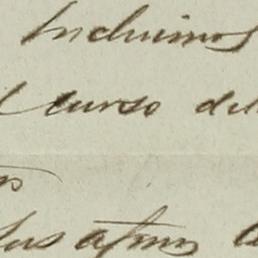 Incluimos
curso del
Sus afmos